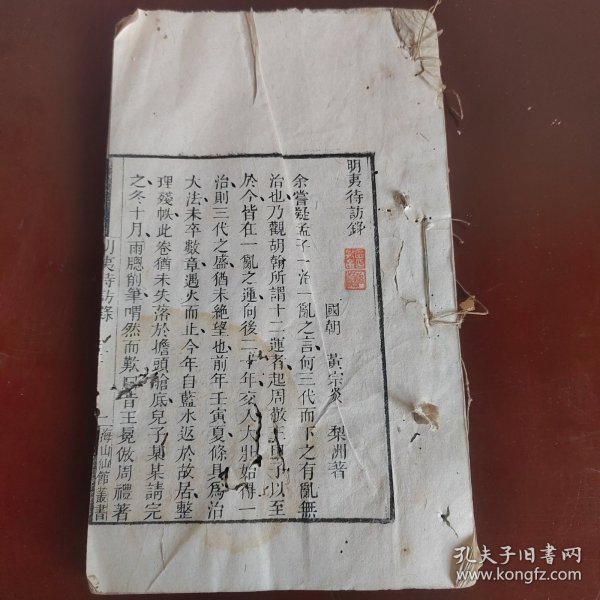 明夷待訪錄
國朝 黃宗炎 梨洲著
余嘗疑孟子一治一亂之言何三代而下之有亂無
治也乃觀胡翰所謂十二運者起周敬王甲子以至
於今皆在一亂之運向後二十年交入大壯始得一
治則三代之盛猶未絕望也前年壬寅夏條具爲治
大法未卒數章遇火而止今年自藍水返於故居整
理殘帙此卷猶未失落於擔頭艙底兒子某某請完
之冬十月雨牕削筆喟然而歎曰昔王冕倣周禮著
明夷待訪錄
一
海山仙館叢書
孔夫子旧书网
www.kongfz.com